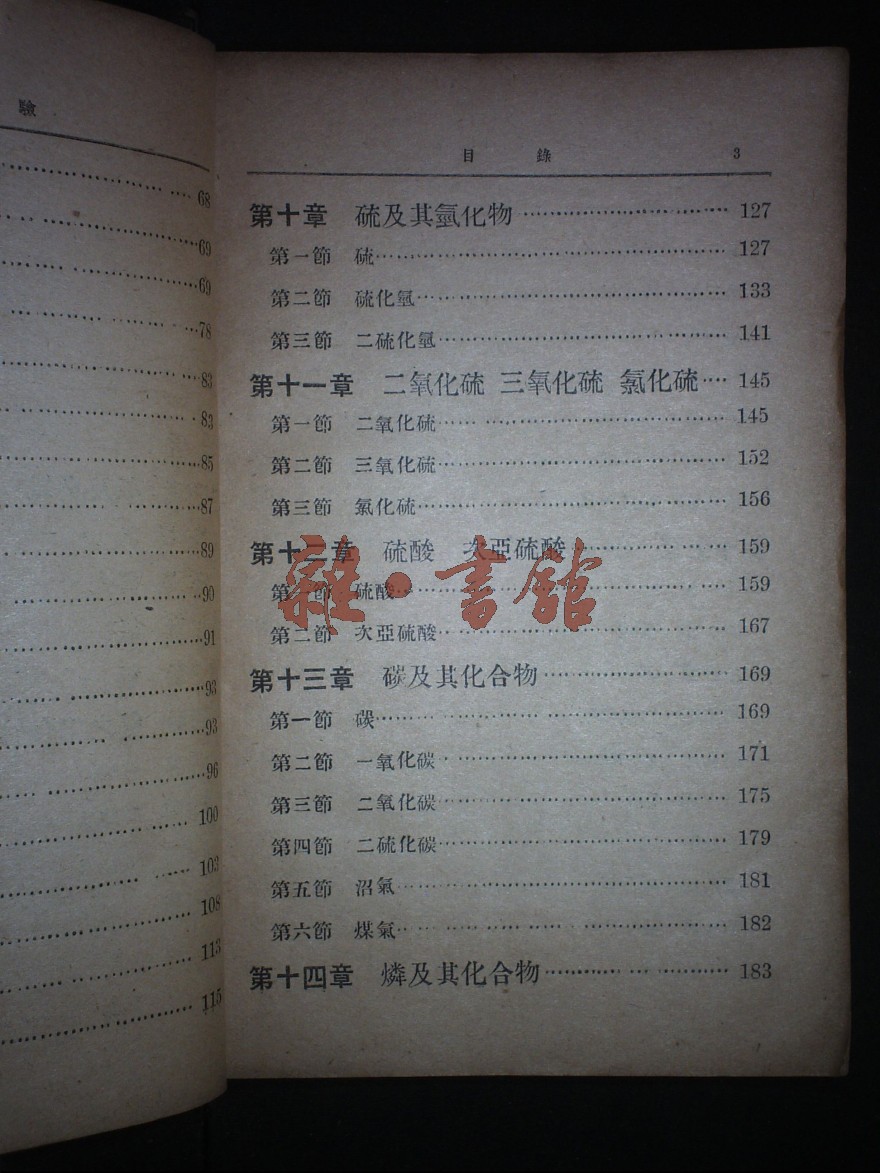 驗
68
69
69
78
83
83
85
87
89
90
91
93
93
96
100
103
108
113
115
目錄 3
第十章 硫及其氫化物 127
第一節 硫 127
第二節 硫化氫 133
第三節 二硫化氫 141
第十一章 二氧化硫 三氧化硫 氯化硫 145
第一節 二氧化硫 145
第二節 三氧化硫 152
第三節 氯化硫 156
第十二章 硫酸 次亞硫酸 159
第一節 硫酸 159
第二節 次亞硫酸 167
雜·書館
第十三章 碳及其化合物 169
第一節 碳 169
第二節 一氧化碳 171
第三節 二氧化碳 175
第四節 二硫化碳 179
第五節 沼氣 181
第六節 煤氣 182
第十四章 燐及其化合物 183